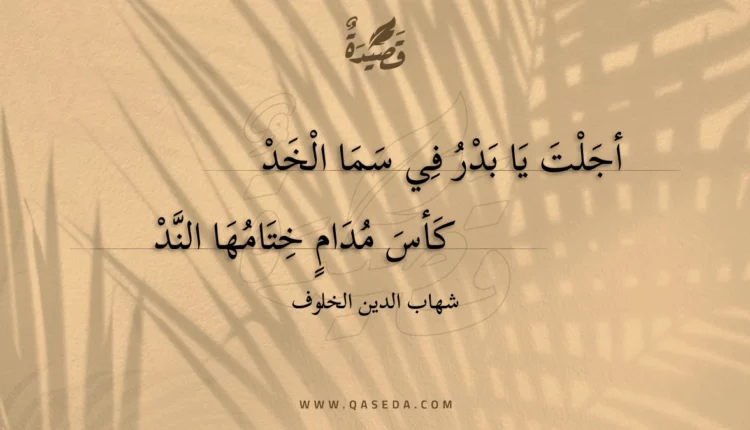 قَصِيدَةٌ
أجَلْتَ يَا بَدْرُ فِي سَمَا الْخَدْ
كَأسَ مُدَامٍ خِتَامُهَا النَّدْ
شهاب الدين الخلوف
WWW.QASEDA.COM